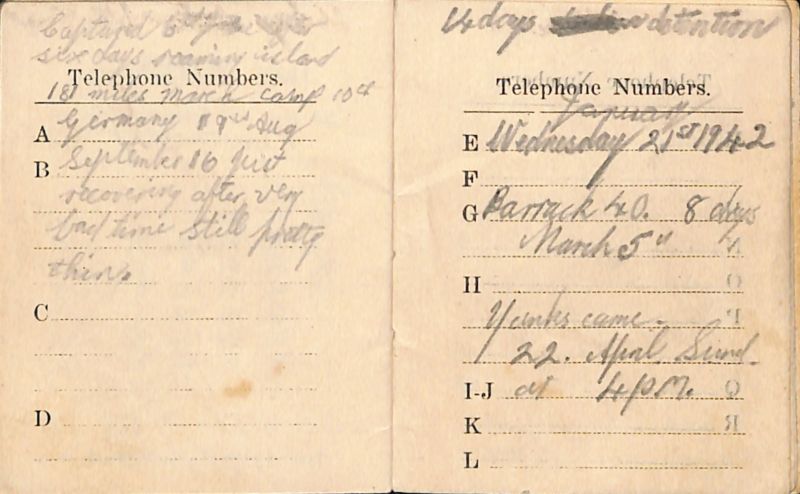 Captured 6th June after
six days roaming island
Telephone Numbers.
181 miles march camp 10th
A Germany 19th Aug
B September 16 just
recovering after very
bad time still pretty
thin
C
D
14 days detention
Telephone Numbers.
January
E Wednesday 21st 1942
F
G Barrack 40. 8 days
March 5th
H
Yanks came.
22. April Sund.
I-J at 4 p.m.
K
L